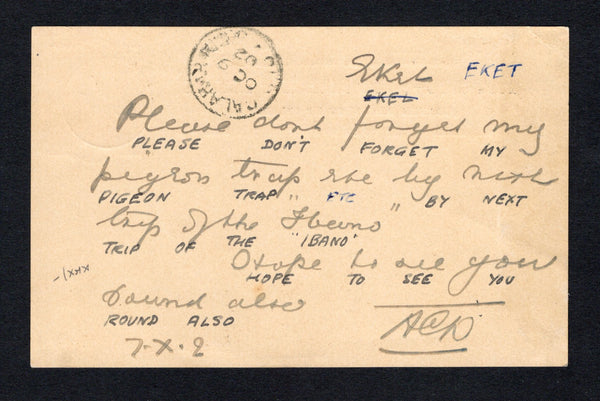 CALABAR
OC 9
02
Eket EKET
EKEL
Please dont forget my
PLEASE DON'T FORGET MY
pigeon trap etc by next
PIGEON TRAP " ETC " BY NEXT
trip of the Ibeno
TRIP OF THE "IBANO"
Hope to see you
HOPE TO SEE YOU
round also
ROUND ALSO
7-X-2